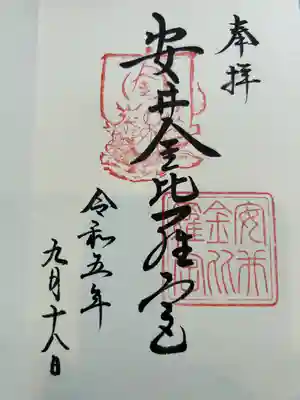 奉拝
安井金比羅宮
令和五年
九月十八日
安井
金比
羅宮